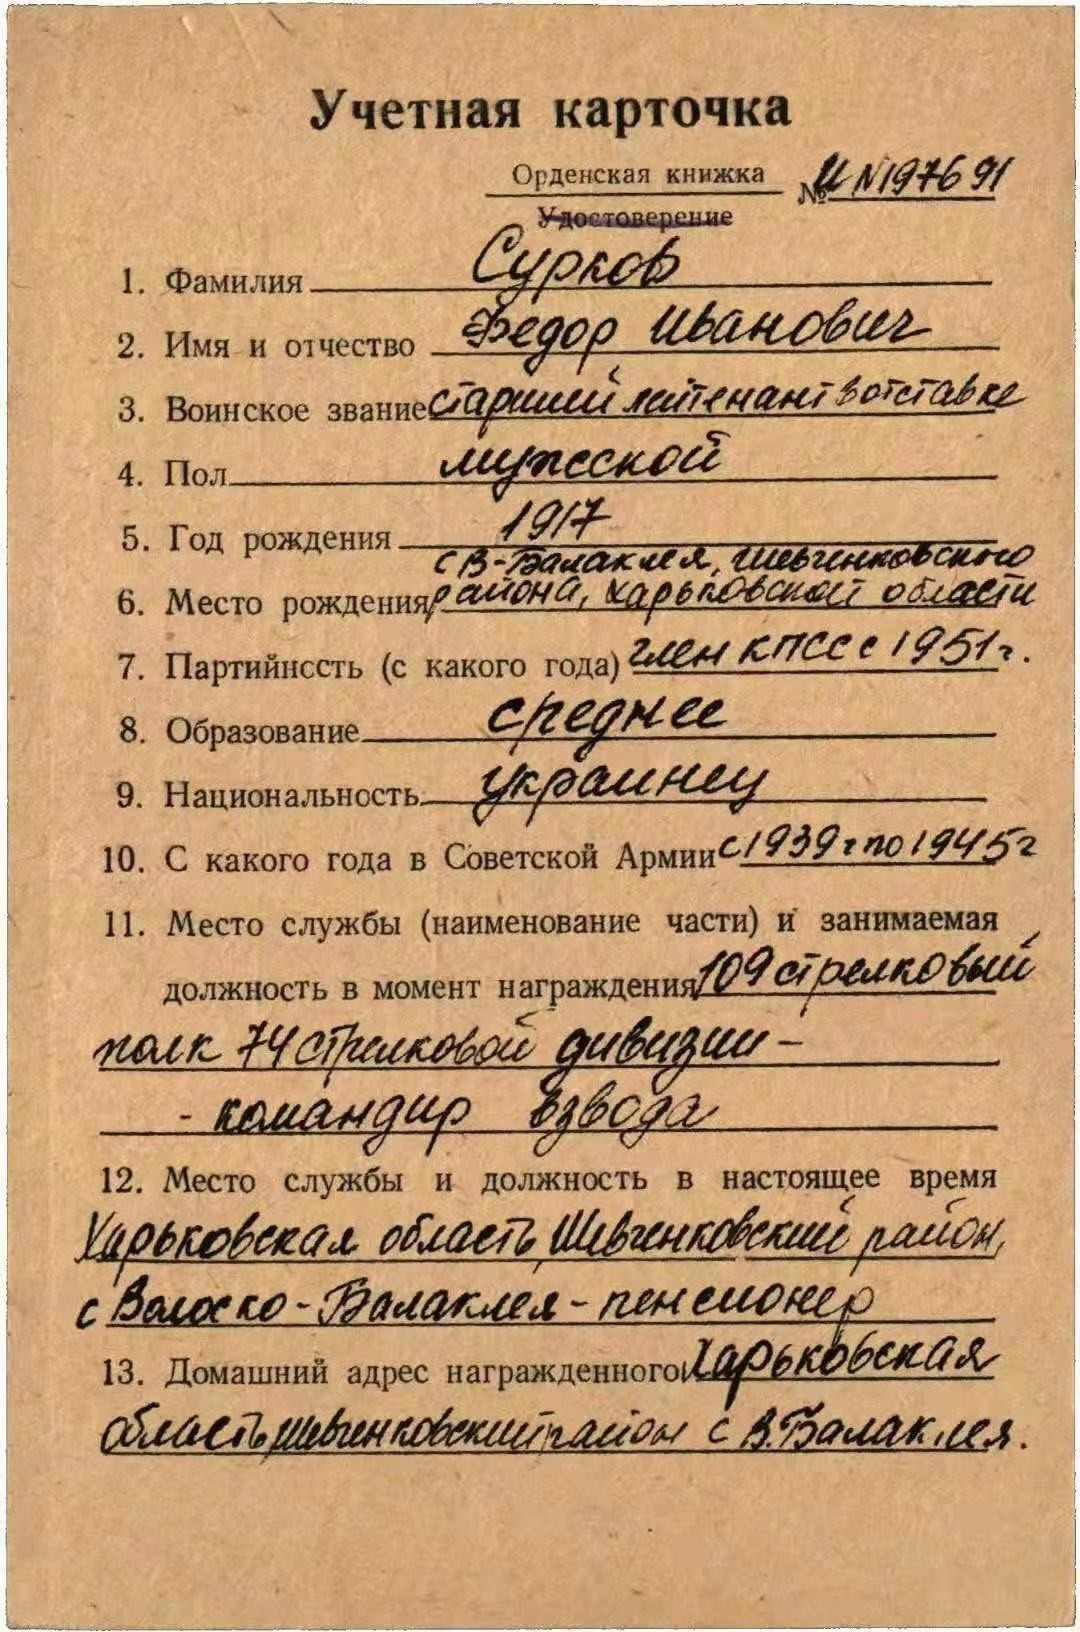 Учетная карточка
Орденская книжка № И N197691
Удостоверение
1. Фамилия Сурков
2. Имя и отчество Федор Иванович
3. Воинское звание старший лейтенант в отставке
4. Пол мужской
5. Год рождения 1917
с В-Балаклея, Шевченковского
6. Место рождения района, Харьковской области
7. Партийнссть (с какого года) член КПСС с 1951 г.
8. Образование среднее
9. Национальность украинец
10. С какого года в Советской Армии с 1939 г по 1945 г
11. Место службы (наименование части) и занимаемая
должность в момент награждения 109 стрелковый
полк 74 стрелковой дивизии -
- командир взвода
12. Место службы и должность в настоящее время
Харьковская область, Шевченковский район,
с Волоско-Балаклея - пенсионер
13. Домашний адрес награжденного Харьковская
область, Шевченковский район с В.Балаклея.